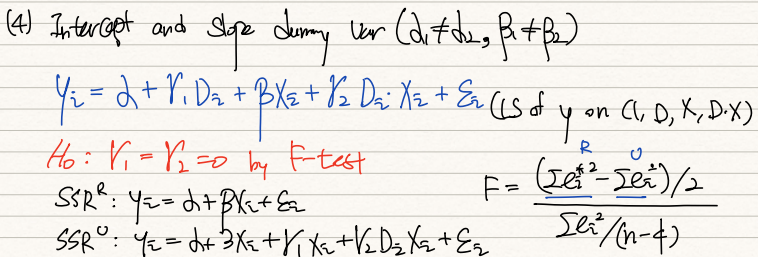 (4) Intercept and Slope dummy var (α₁≠α₂, β₁≠β₂)
Yᵢ = α + γ₁Dᵢ + βXᵢ + γ₂Dᵢ·Xᵢ + εᵢ (LS of y on C1, D, X, D·X)
H₀: γ₁ = γ₂ = 0 by F-test
SSRᴿ: yᵢ = α + βXᵢ + εᵢ
SSRᵁ: yᵢ = α + βXᵢ + γ₁Xᵢ + γ₂DᵢXᵢ + εᵢ
R U
F = (Σeᵢ*² - Σeᵢ²)/2
Σeᵢ²/(n-4)